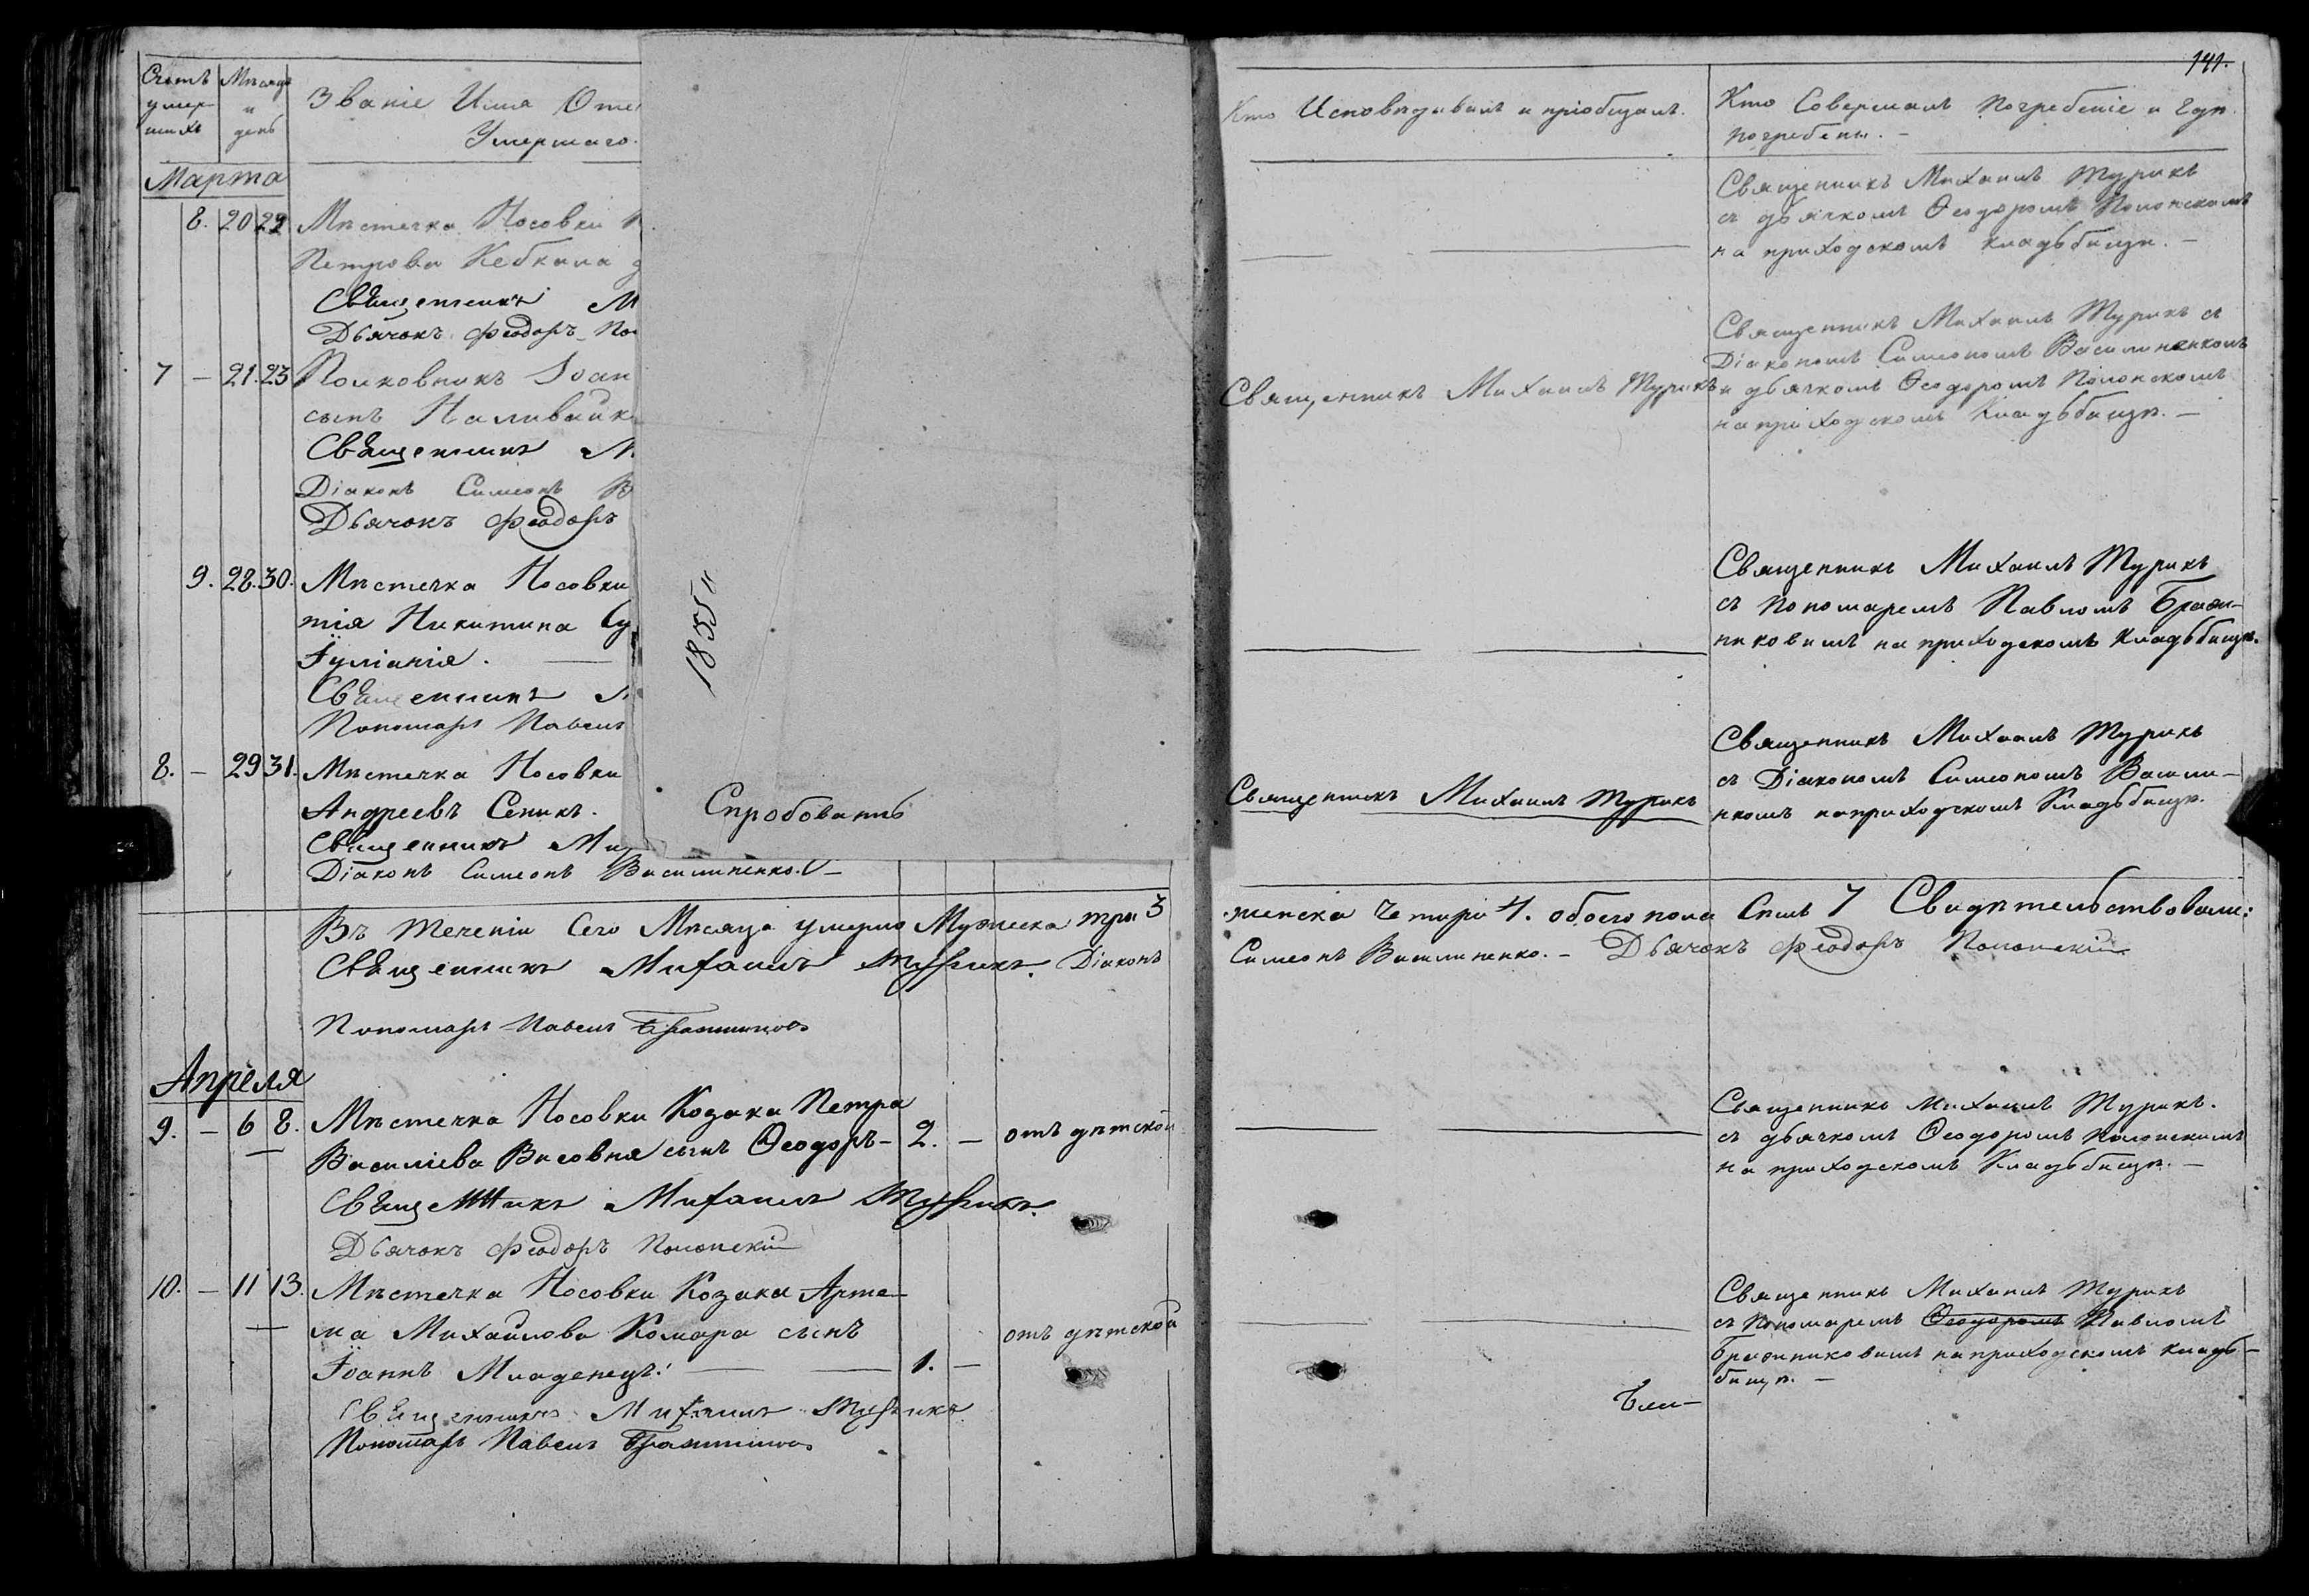 Счетъ умер шихъ
Мѣсяцъ и день
Званіе Имя Оте
Умершаго.
Марта
8. 20 22 Мѣстечка Носовки
Петрова Кебкала
Священникъ М
Дьячокъ Феодоръ По
7 – 21. 23 Полковникъ Іоан
сынъ Наливайк
Священникъ М
Діаконъ Симеонъ В
Дьячокъ Феодоръ
9. 28. 30. Мѣстечка Носовки
тія Никитина Су
Іуліанія. —
Священникъ
Пономарь Павелъ
8. – 29 31. Мѣстечка Носовки
Андреевъ Сеникъ.
Священникъ Ми
Діаконъ Симеонъ Василиненко. –
1855
Спробовать
Въ теченіи Сего Мѣсяца умерло Мужеска три 3
Священникъ Михаилъ Турикъ. Діаконъ
Пономарь Павелъ Бражниковъ
Апрѣля
9. – 6 8. Мѣстечка Носовки Козака Петра
Василіева Висовня сынъ Ѳеодоръ – 2. – отъ дѣтской
Священникъ Михаилъ Турикъ.
Дьячокъ Феодоръ Полонскій
10. – 11 13. Мѣстечка Носовки Козака Арте–
ма Михайлова Комара сынъ отъ дѣтской
Іоаннъ Младенецъ. — 1. –
Священникъ Михаилъ Турикъ.
Пономарь Павелъ Бражниковъ
141.
Кто Исповѣдывалъ и пріобщалъ.
Кто Совершалъ Погребеніе и Гдѣ
погребены. –
Священникъ Михаилъ Турикъ
съ дьячкомъ Ѳеодоромъ Полонскомъ
на приходскомъ кладьбищѣ. –
Священникъ Михаилъ Турикъ
Священникъ Михаилъ Турикъ съ
Діакономъ Симеономъ Василиненкомъ
и дьячкомъ Ѳеодоромъ Полонскомъ
на приходскомъ Кладьбищѣ. –
Священникъ Михаилъ Турикъ
съ Пономаремъ Павломъ Бражи–
никовимъ на приходскомъ Кладьбищѣ.
Священникъ Михаилъ Турикъ
Священникъ Михаилъ Турикъ
съ Діакономъ Симеономъ Васили–
нкомъ на приходскомъ Кладьбищѣ.
женска Четири 4. обоего пола Семь 7 Свидѣтельствовали:
Симеонъ Василиненко. – Дьячокъ Феодоръ Полонскій
Священникъ Михаилъ Турикъ.
съ дьячкомъ Ѳеодоромъ Полонскимъ
на приходскомъ Кладьбищѣ. –
Священникъ Михаилъ Турикъ
съ Пономаремъ Ѳеодоромъ Павломъ
Бражниковимъ на приходскомъ кладь–
бищѣ. –